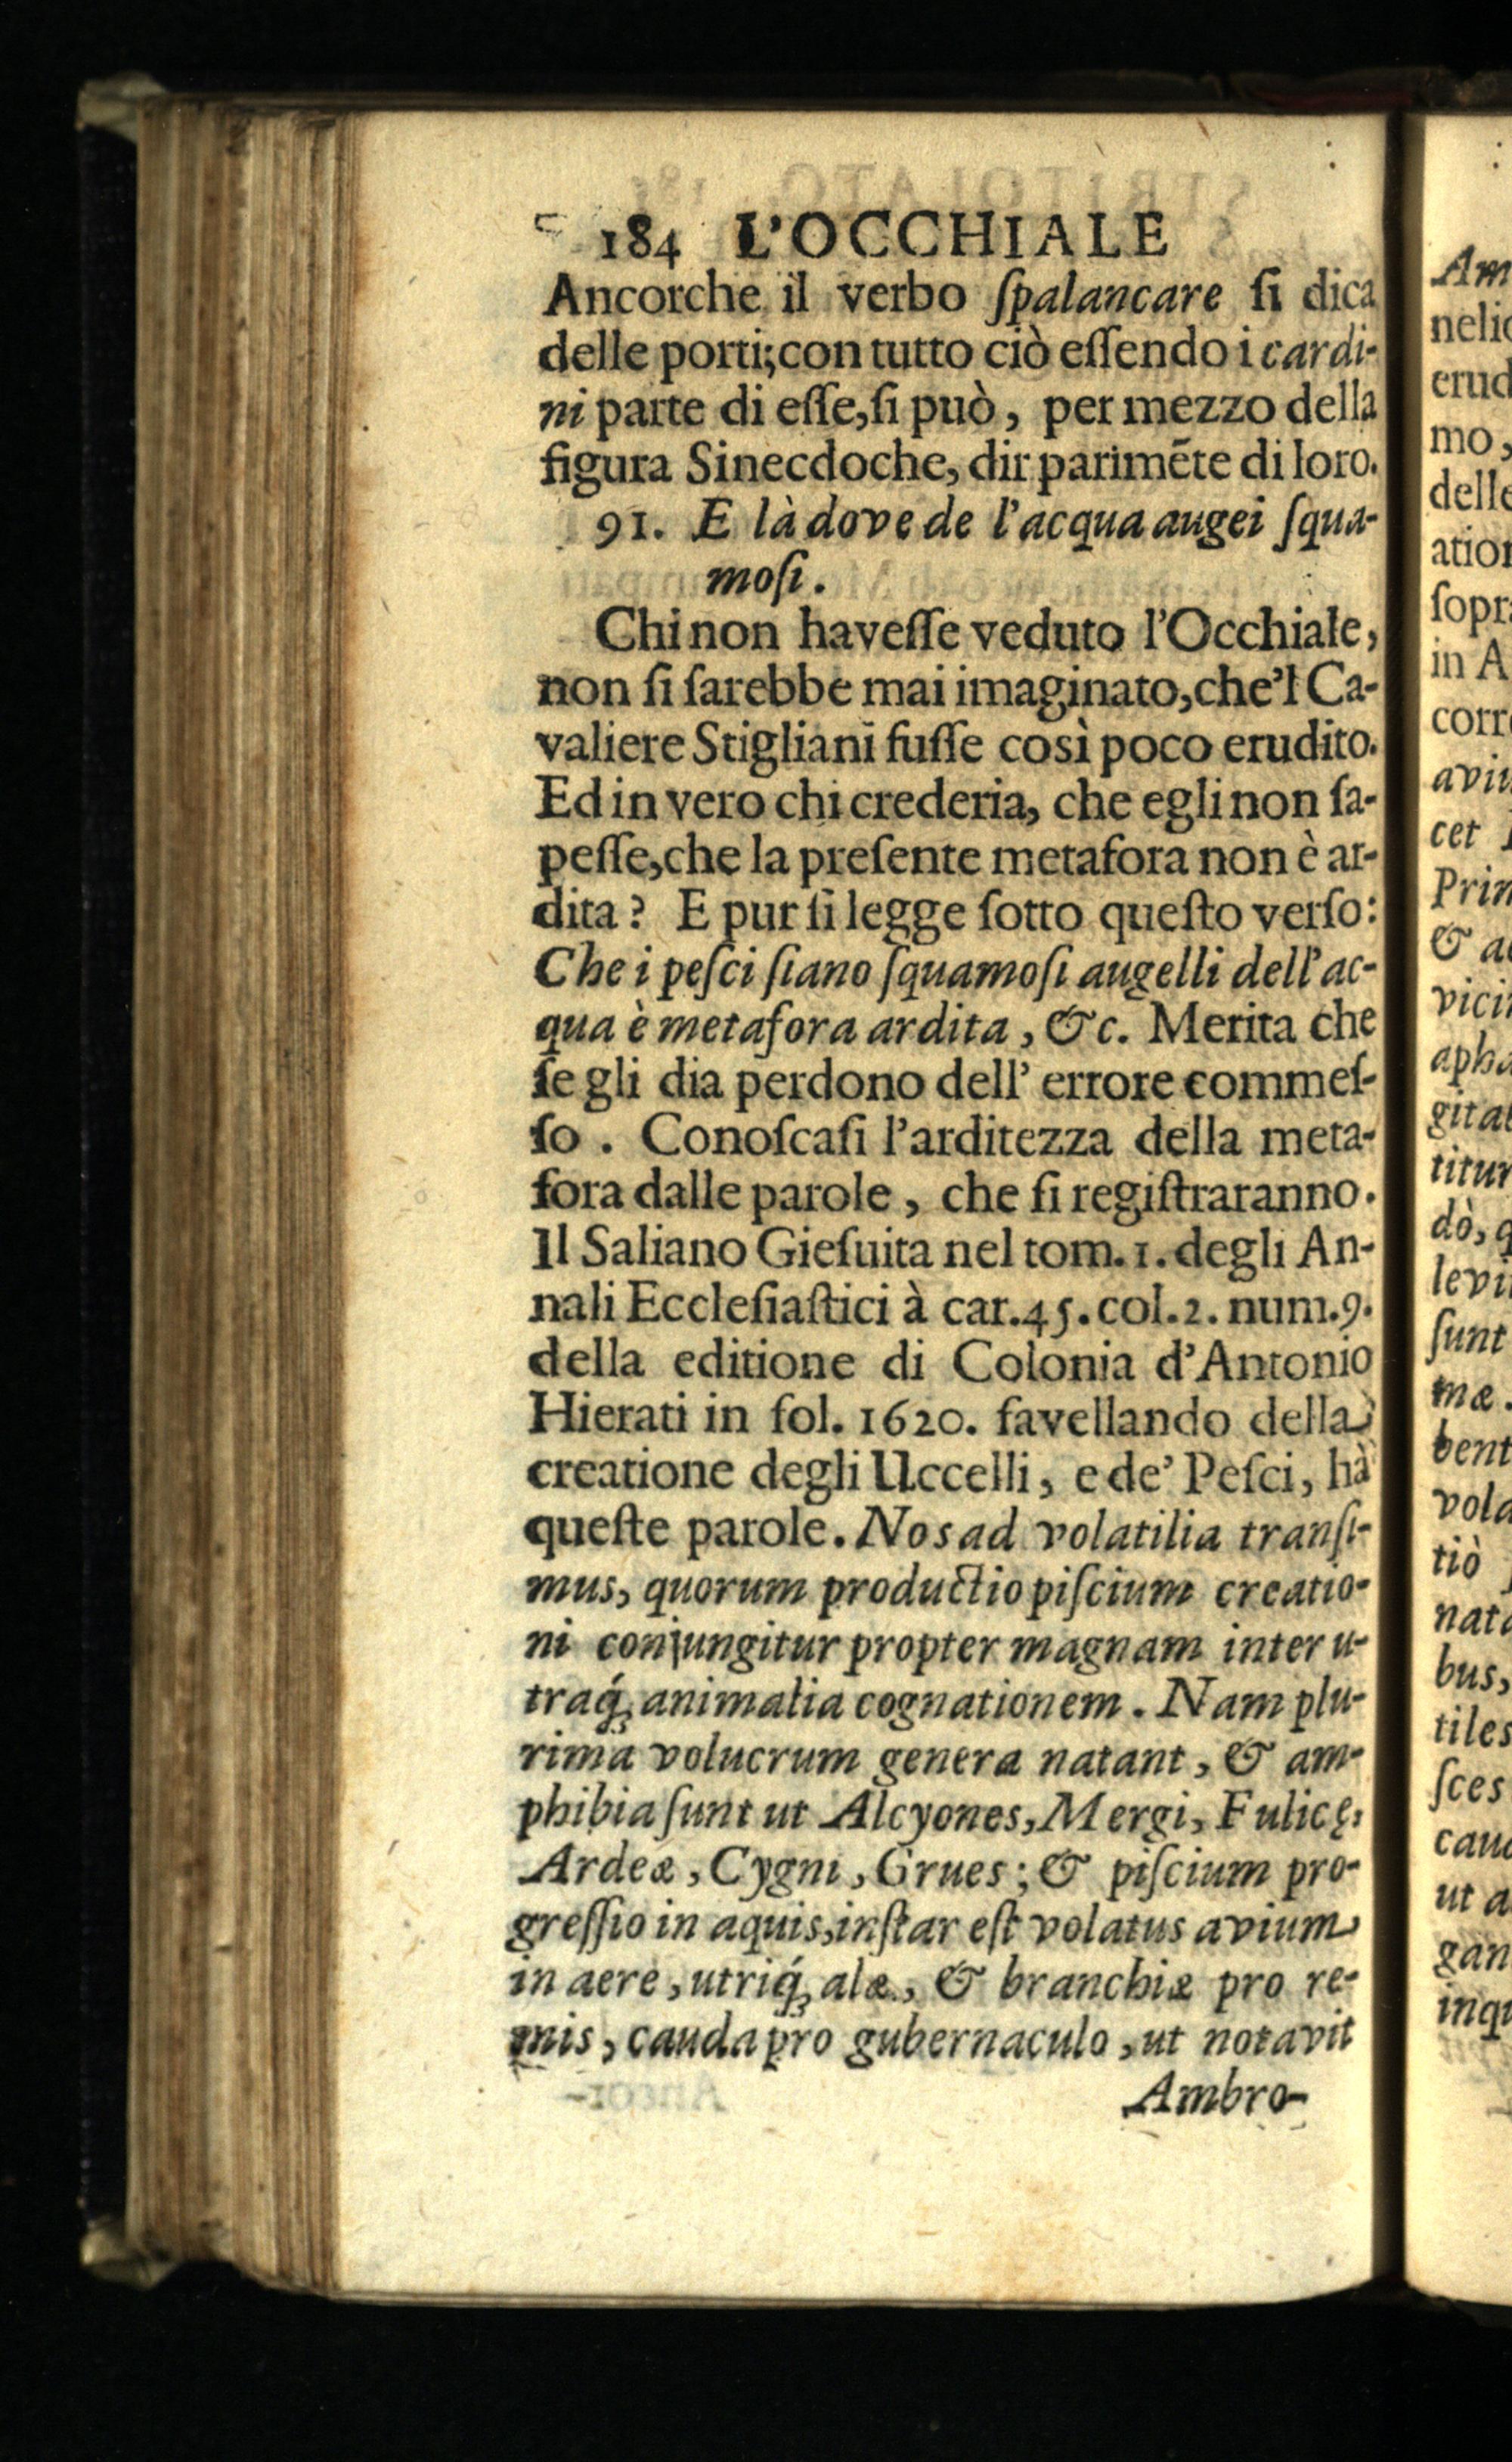 184 L'OCCHIALE
Ancorche il verbo ſpalancare ſi dica
delle porti; con tutto ciò eſſendo i cardi-
ni parte di eſſe, ſi può, per mezzo della
figura Sinecdoche, dir parimẽte di loro.
91. E là dove de l'acqua augei ſqua-
moſi.
Chi non haveſſe veduto l'Occhiale,
non ſi ſarebbe mai imaginato, che'l Ca-
valiere Stigliani fuſſe così poco erudito.
Ed in vero chi crederia, che egli non ſa-
peſſe, che la preſente metafora non è ar-
dita? E pur ſi legge ſotto queſto verſo:
Che i peſci ſiano ſquamoſi augelli dell'ac-
qua è metafora ardita, &c. Merita che
ſe gli dia perdono dell' errore commeſ-
ſo. Conoſcaſi l'arditezza della meta-
fora dalle parole, che ſi regiſtraranno.
Il Saliano Gieſuita nel tom. 1. degli An-
nali Eccleſiaſtici à car. 45. col. 2. num. 9.
della editione di Colonia d'Antonio
Hierati in fol. 1620. favellando della
creatione degli Uccelli, e de' Peſci, hà
queſte parole. Nos ad volatilia tranſi-
mus, quorum productio piſcium creatio-
ni conjungitur propter magnam inter u-
traq́; animalia cognationem. Nam plu-
rima volucrum genera natant, & am-
phibia ſunt ut Alcyones, Mergi, Fulicę,
Ardeæ, Cygni, Grues; & piſcium pro-
greſſio in aquis, inſtar eſt volatus avium
in aere, utriq́; alæ, & branchiæ pro re-
mis, cauda pro gubernaculo, ut notavit
Ambro-
Am
nelio
erud
mo,
delle
ation
ſopra
in A
corre
aviu
cet
Prin
& ac
vicin
apha
gital
titur
dò, q
levi
ſunt
mæ.
bent
vola
tiò
nata
bus,
tiles
ſces
caud
ut a
gan
inqu